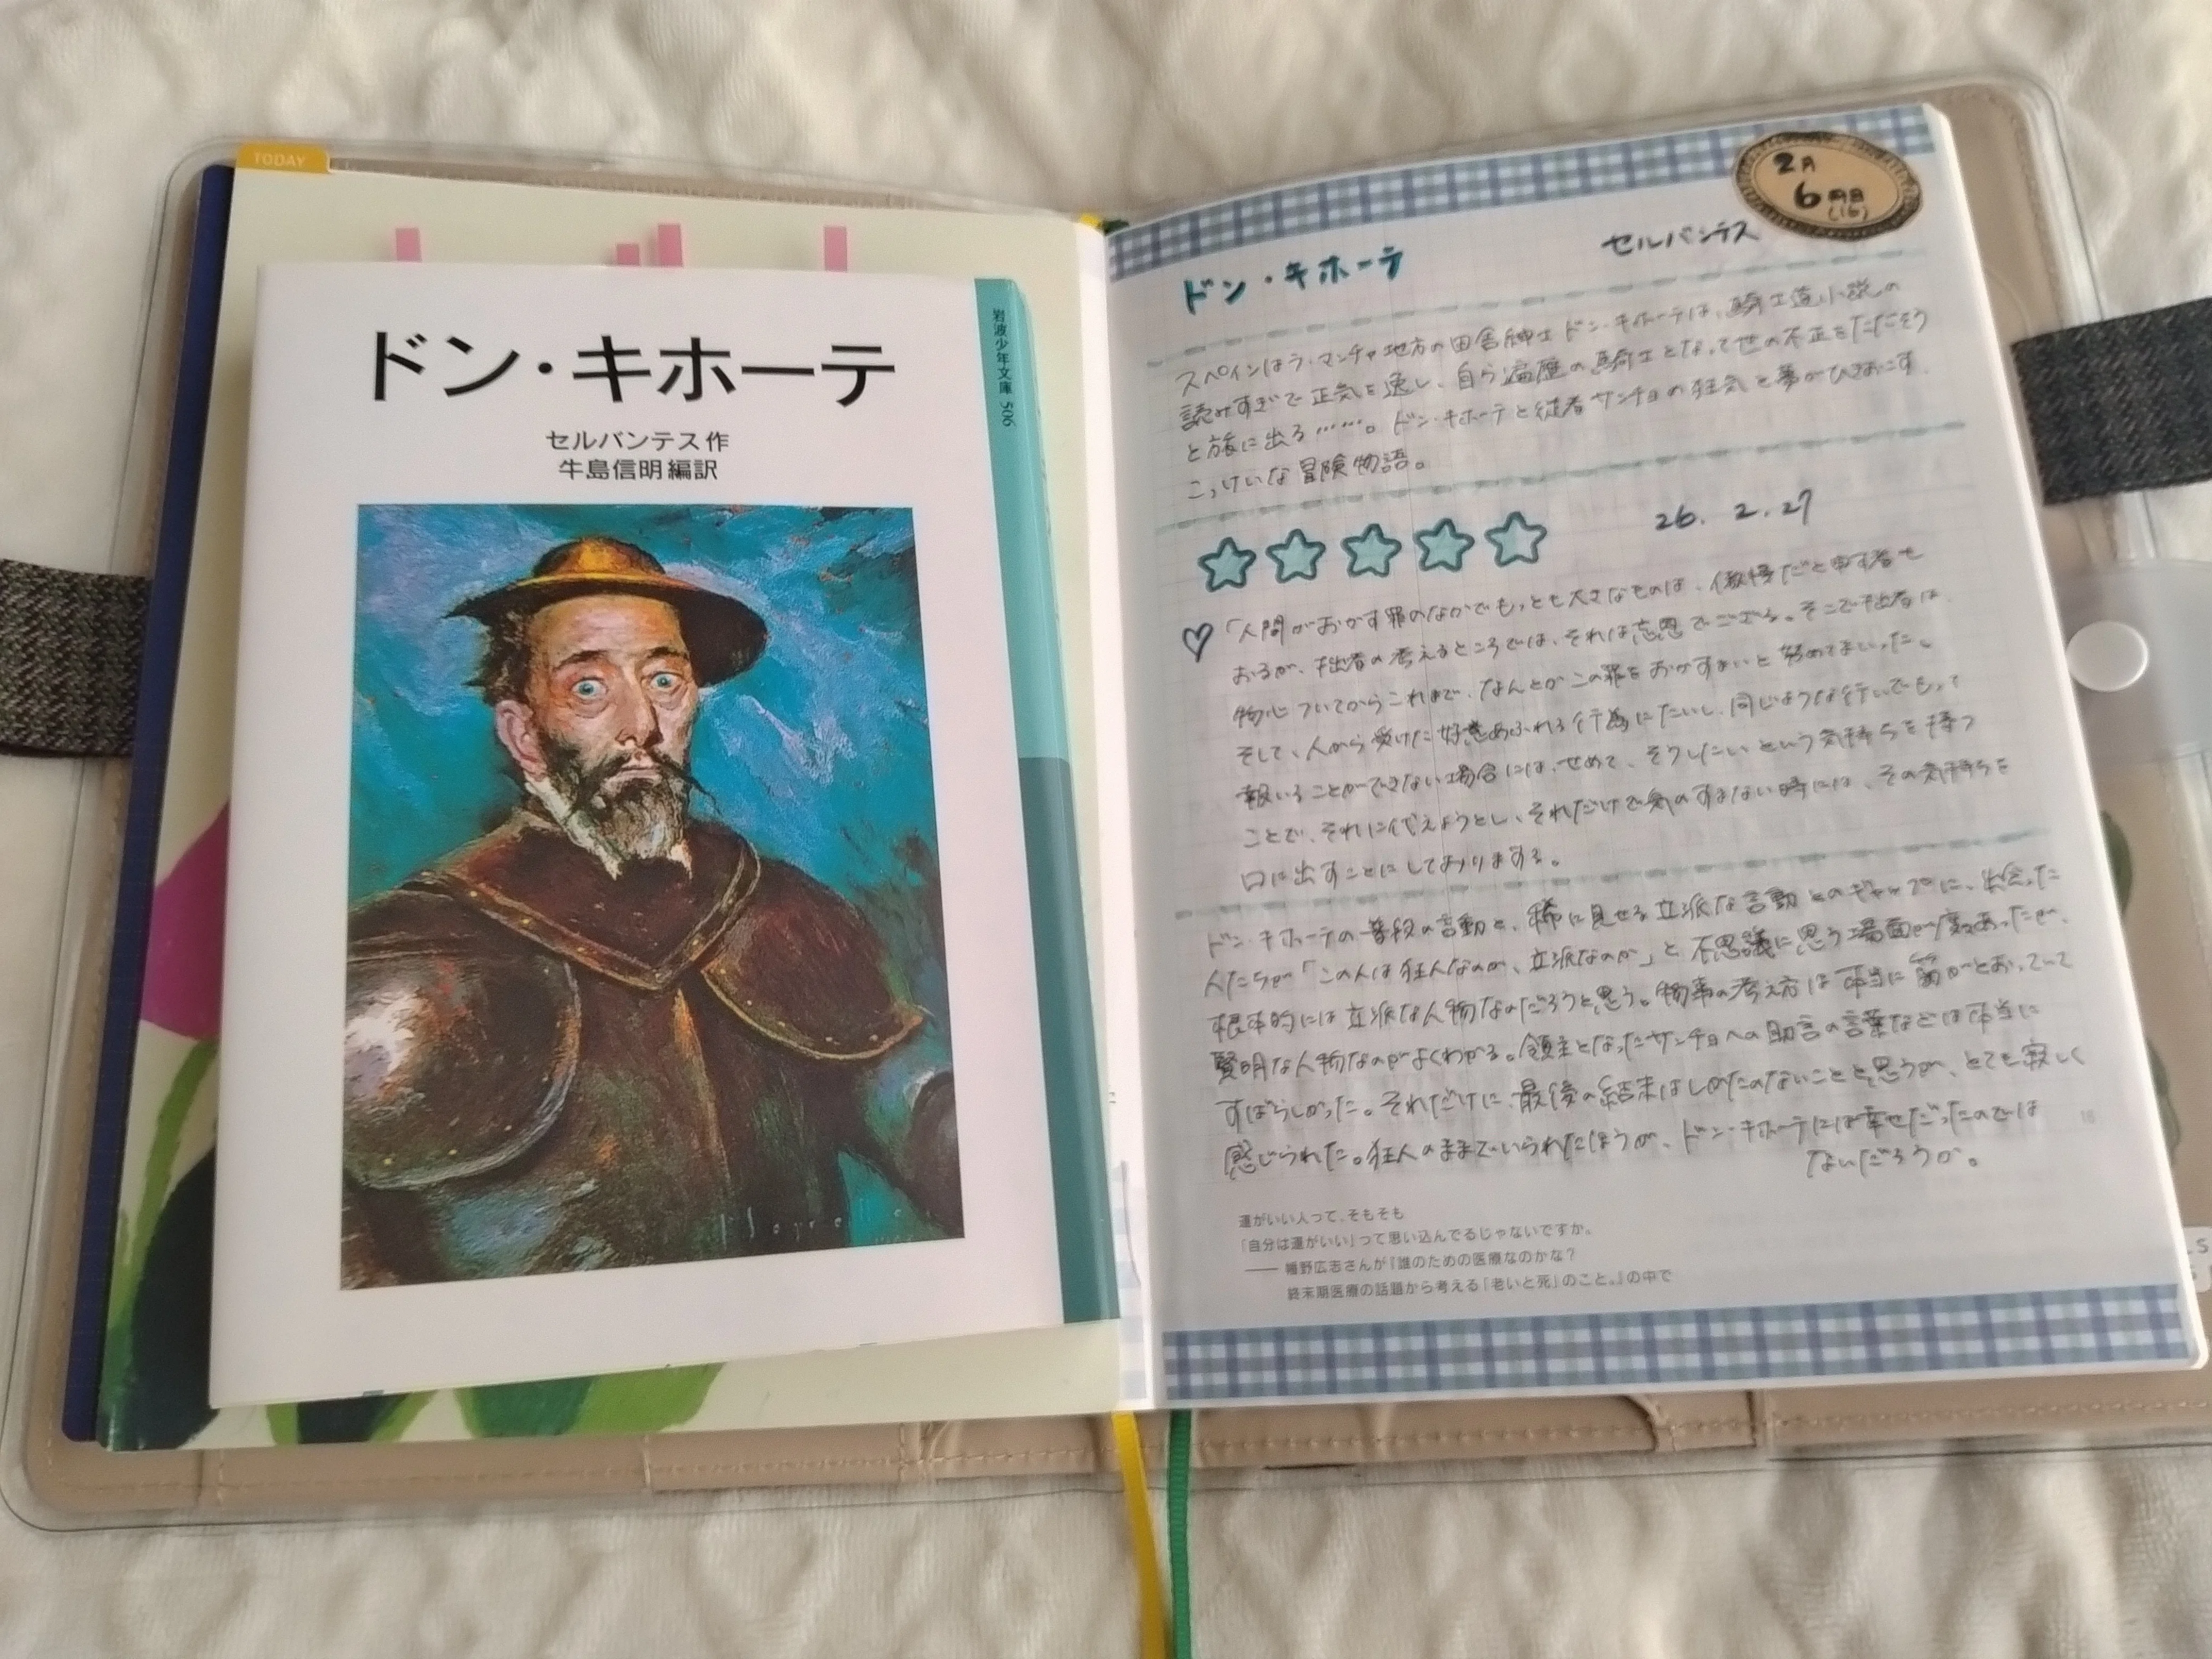 TODAY
ドン・キホーテ
セルバンテス作
牛島信明編訳
岩波少年文庫 506
2月
6冊目
(16)
ドン・キホーテ
セルバンテス
スペインはラ・マンチャ地方の田舎紳士ドン・キホーテは、騎士道小説の
読みすぎで正気を逸し、自ら遍歴の騎士となって世の不正をただそう
と旅に出る……。ドン・キホーテと従者サンチョの狂気と夢がひきおこす
こっけいな冒険物語。
26. 2. 27
「人間がおかす罪のなかでもっとも大きなものは、傲慢だと申す者も
おるが、拙者の考えるところでは、それは忘恩でござる。そこで拙者は、
物心ついてからこれまで、なんとかこの罪をおかすまいと努めてまいった。
そして、人から受けた好意あふれる行為にたいし、同じような行いでもって
報いることができない場合には、せめて、そうしたいという気持ちを持つ
ことで、それに代えようとし、それだけで気のすまない時には、その気持ちを
口に出すことにしておりまする。
ドン・キホーテの普段の言動と、稀に見せる立派な言動とのギャップに、出会った
人たちが「この人は狂人なのか、立派なのか」と不思議に思う場面が度々あったが、
根本的には立派な人物なのだろうと思う。物事の考え方は本当に筋がとおっていて
賢明な人物なのがよくわかる。領主となったサンチョへの助言の言葉などは本当に
すばらしかった。それだけに、最後の結末はしかたのないことと思うが、とても寂しく
感じられた。狂人のままでいられたほうが、ドン・キホーテには幸せだったのでは
ないだろうか。
16
運がいい人って、そもそも
「自分は運がいい」って思い込んでるじゃないですか。
—— 幡野広志さんが『誰のための医療なのかな？
終末期医療の話題から考える「老いと死」のこと。』の中で